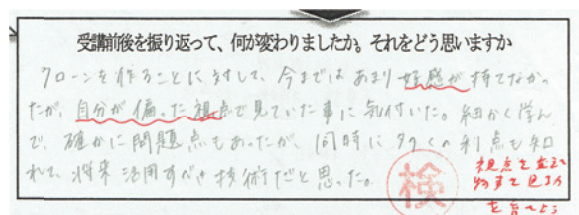 受講前後を振り返って、何が変わりましたか。それをどう思いますか
クローンを作ることに対して、今まではあまり好感が持てなかっ
たが、自分が偏った視点で見ていた事に気付いた。細かく学ん
で、確かに問題点もあったが、同時に多くの利点も知
れて、将来活用すべき技術だと思った。
検
視点を変えて
物事を